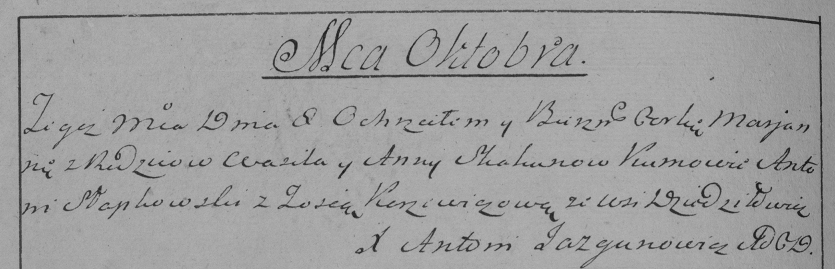 Mca Oktobra.
Tegoż Mca Dnia 8 Ochrzciłem y Bierzm Corkę Marjan
nę z Rodzicow Wasila y Anny Skakunow Kumowie Anto
ni Słapkowski z Zosią ze wsi Dziedziłowicz
X Antoni Jazgunowicz